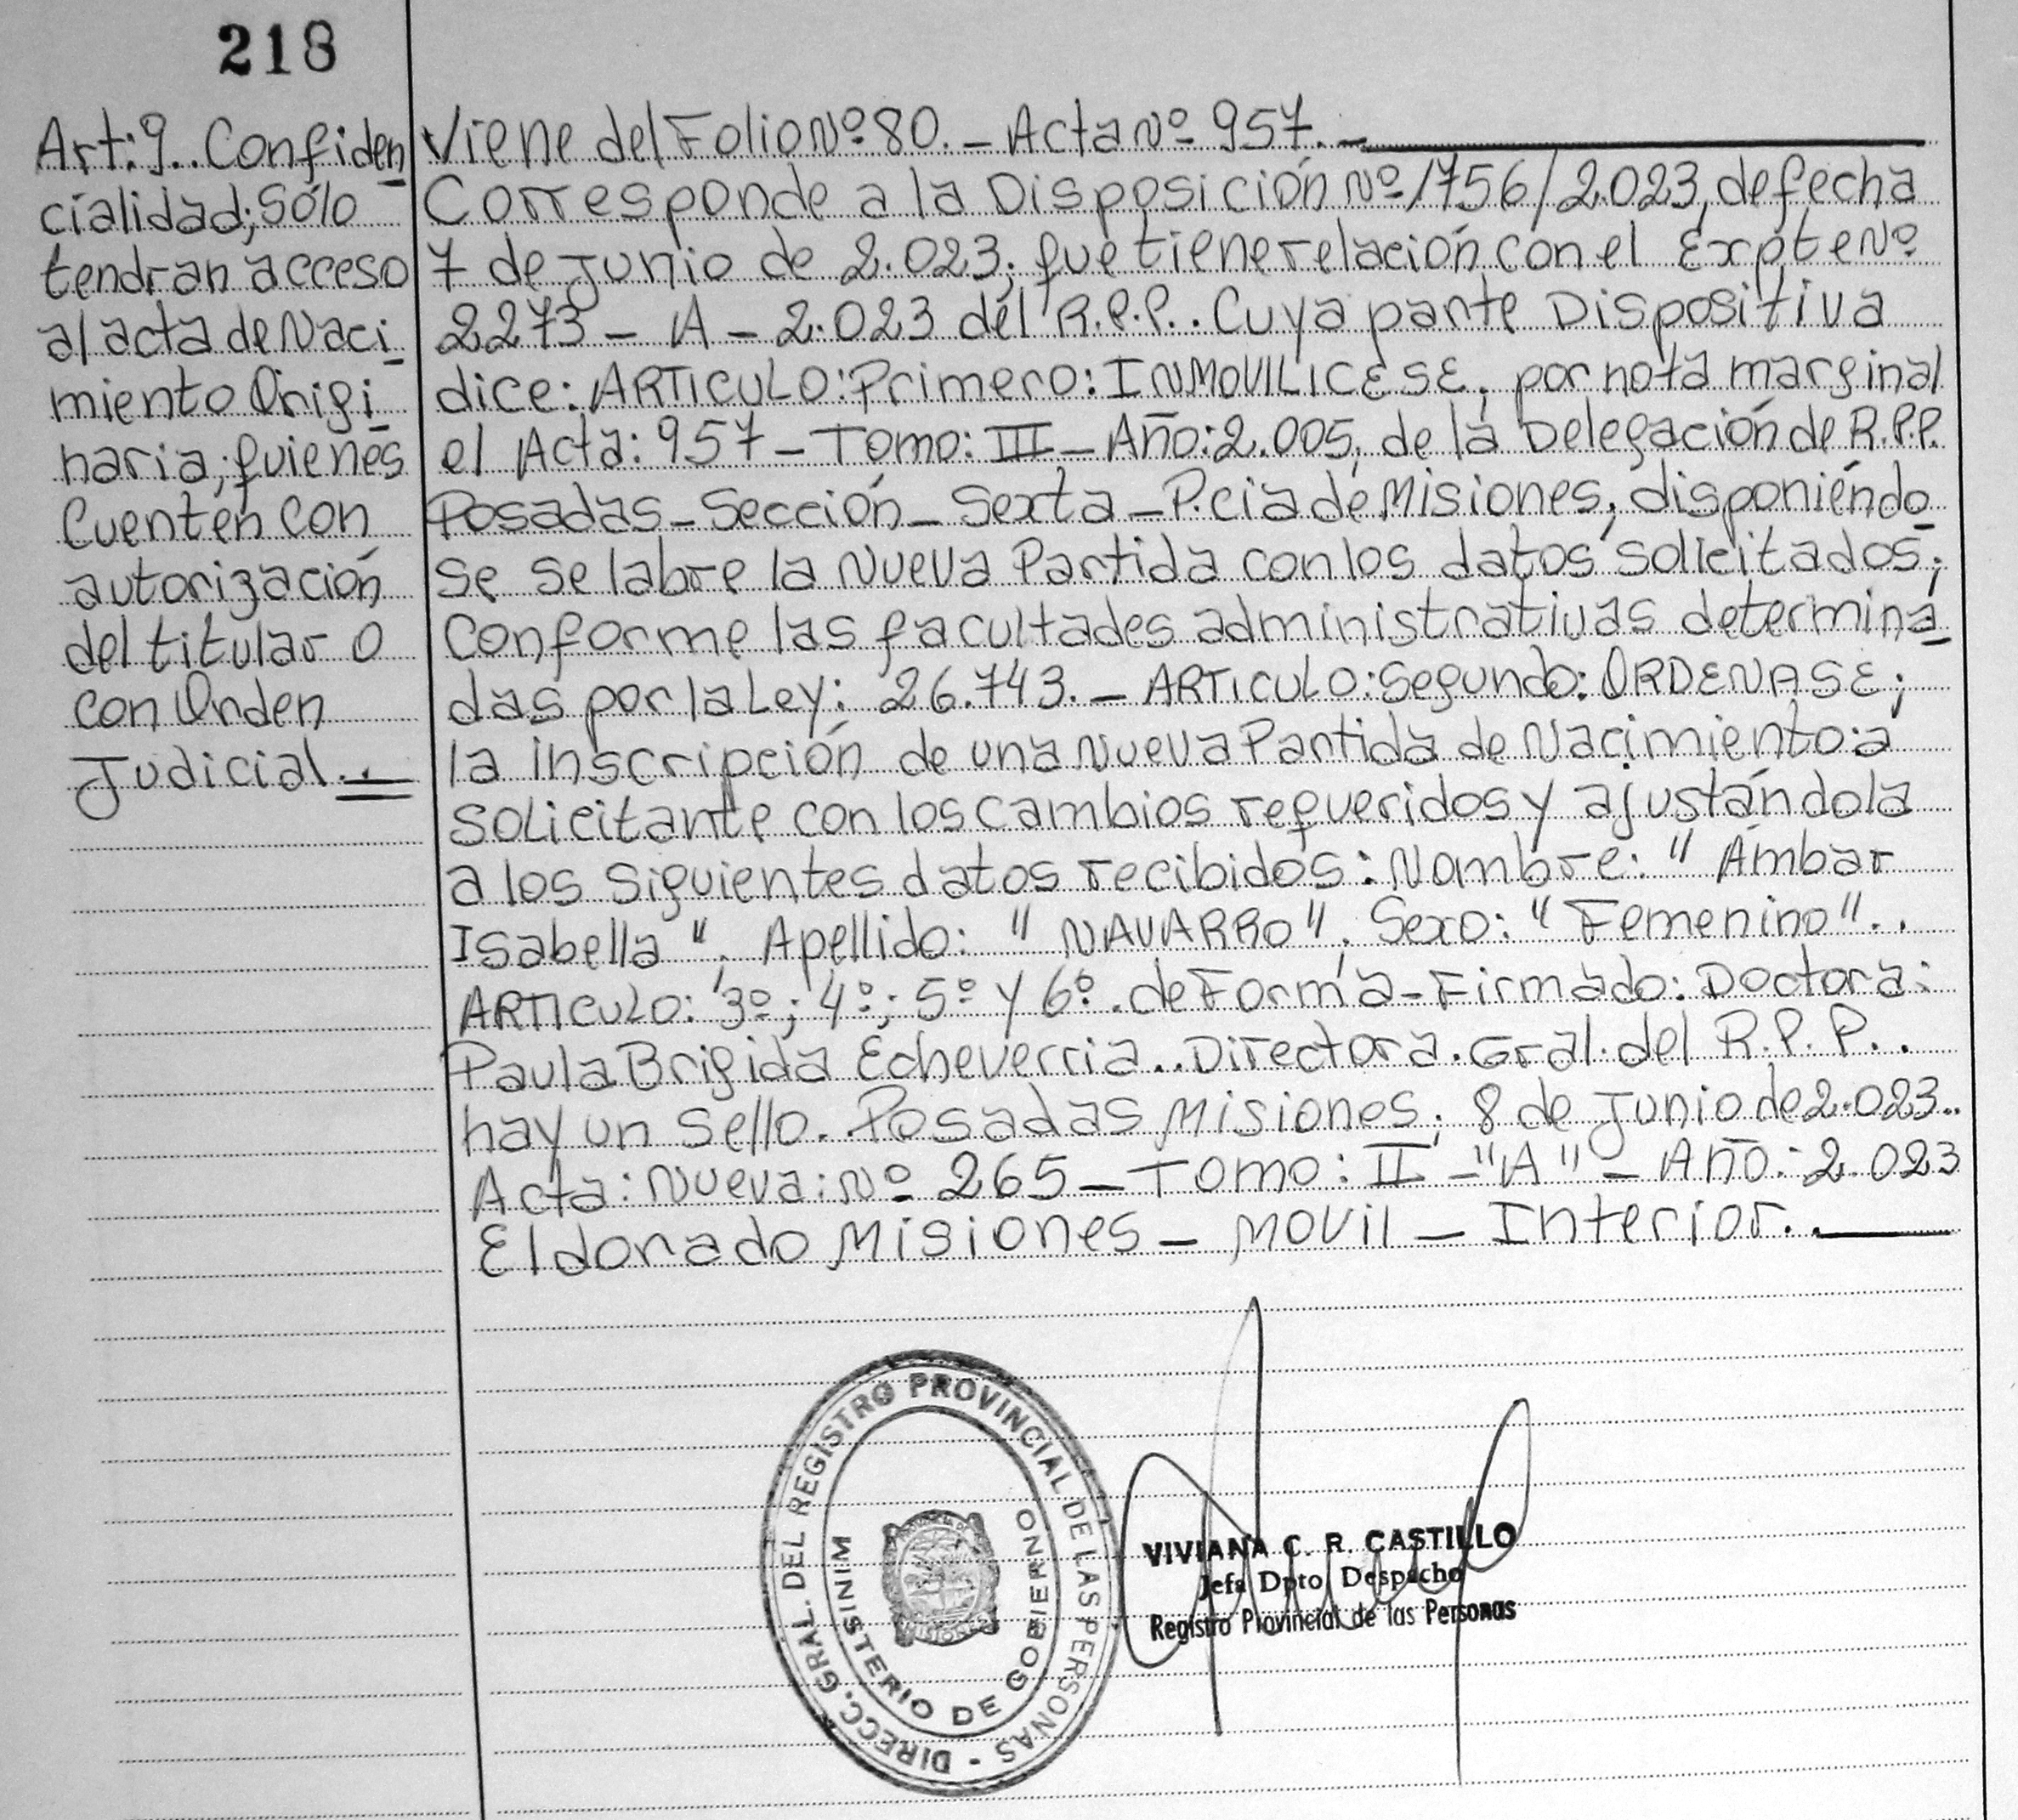 218
Art:9.. Confiden
cialidad; sólo
tendran acceso
al acta de Naci
miento Origi
naria; quienes
Cuenten con
autorización
del titular o
con Orden
Judicial..=
Viene del Folio Nº 80. - Acta Nº 957. -
Corresponde a la Disposición Nº 1756/2.023, de fecha
7 de Junio de 2.023; que tiene relación con el Expte Nº
2273 - A - 2.023 del R.P.P.. Cuya parte Dispositiva
dice: ARTICULO: Primero: INMOVILICESE; por nota marginal
el Acta: 957 - Tomo: III - Año: 2.005, de la Delegación de R.P.P.
Posadas - Sección - Sexta - P.cia de Misiones; disponiéndo
se se labre la Nueva Partida con los datos solicitados;
Conforme las facultades administrativas determina
das por la Ley: 26.743. - ARTICULO: Segundo: ORDENASE;
la inscripción de una Nueva Partida de Nacimiento: a
solicitante con los cambios requeridos y ajustándola
a los siguientes datos recibidos: Nombre: " Ámbar
Isabella ", Apellido: " NAVARRO ", Sexo: " Femenino "..
ARTICULO: 3º; 4º; 5º y 6º. de Forma - Firmado: Doctora:
Paula Brigida Echeverria.. Directora. Gral. del R.P.P..
hay un sello. Posadas Misiones; 8 de Junio de 2.023..
Acta: Nueva: Nº 265 - Tomo: II - "A" - Año: 2.023
Eldorado Misiones - MOVIL - Interior..
DIRECC. GRAL. DEL REGISTRO PROVINCIAL DE LAS PERSONAS -
MINISTERIO DE GOBIERNO
MISIONES
VIVIANA C. R. CASTILLO
Jefa Dpto Despacho
Registro Provincial de las Personas